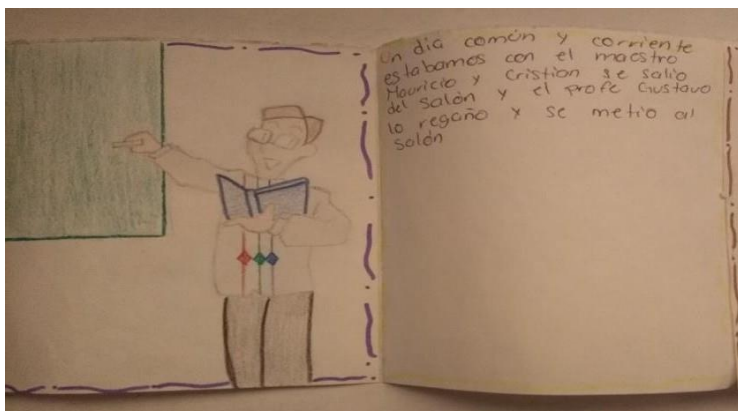 Un dia común y corriente
estabamos con el maestro
Mauricio y Cristian se salio
del salón y el profe Gustavo
lo regaño y se metio al
salón